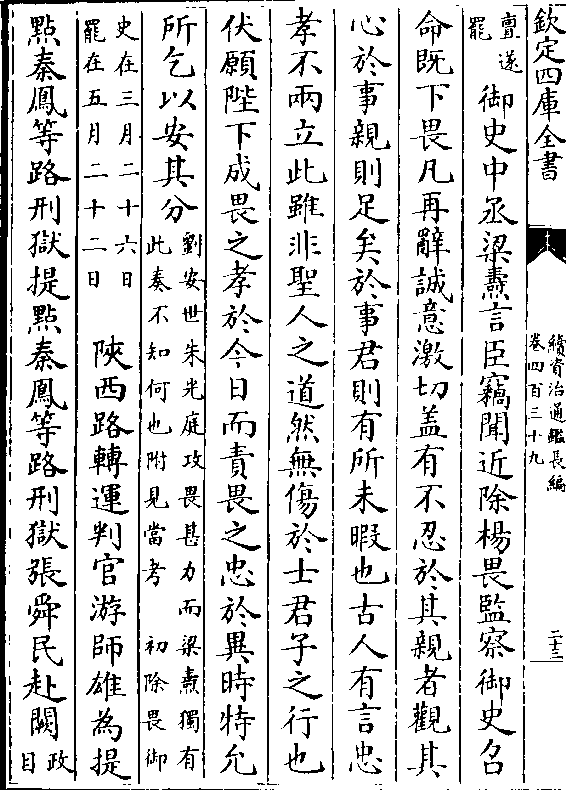 欽定四庫全書
續資治通鑑長編
卷四百三十九
二十二
亶遂
罷
御史中丞梁燾言臣竊聞近除楊畏監察御史召
命既下畏凡再辭誠意激切盖有不忍於其親者觀其
心於事親則足矣於事君則有所未暇也古人有言忠
孝不兩立此雖非聖人之道然無傷於士君子之行也
伏願陛下成畏之孝於今日而責畏之忠於異時特允
所乞以安其分
劉安世朱光庭攻畏甚力而梁燾獨有
此奏不知何也附見當考 初除畏御
史在三月二十六日
罷在五月二十二日
陝西路轉運判官游師雄為提
點秦鳳等路刑獄提點秦鳳等路刑獄張舜民赴闕
政
目